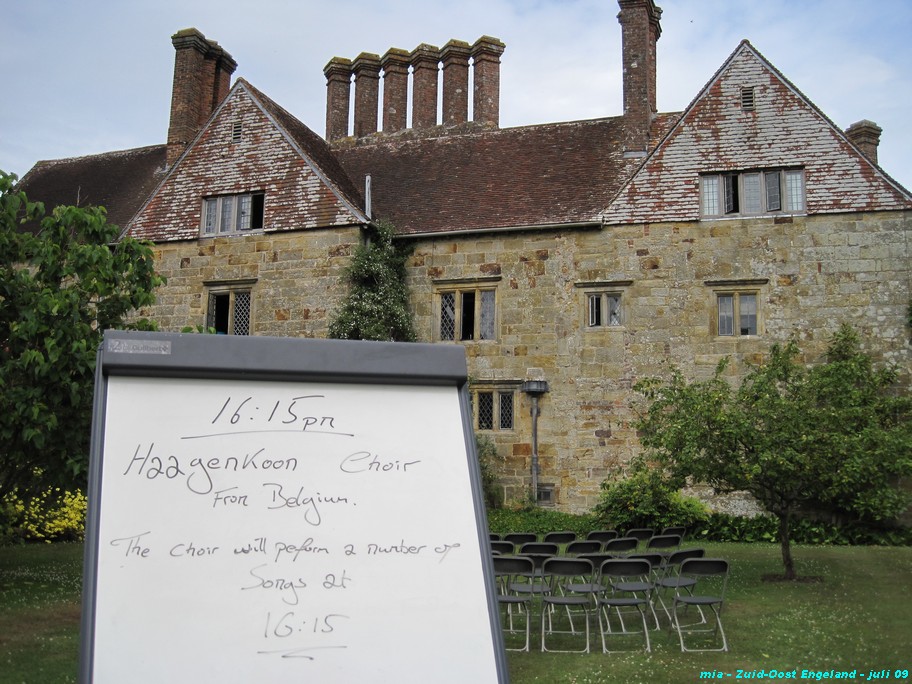 16:15pm
Haagenkoon Choir
From Belgium.
The choir will perform a number of
Songs at
16:15
mia - Zuid-Oost Engeland - juli 09